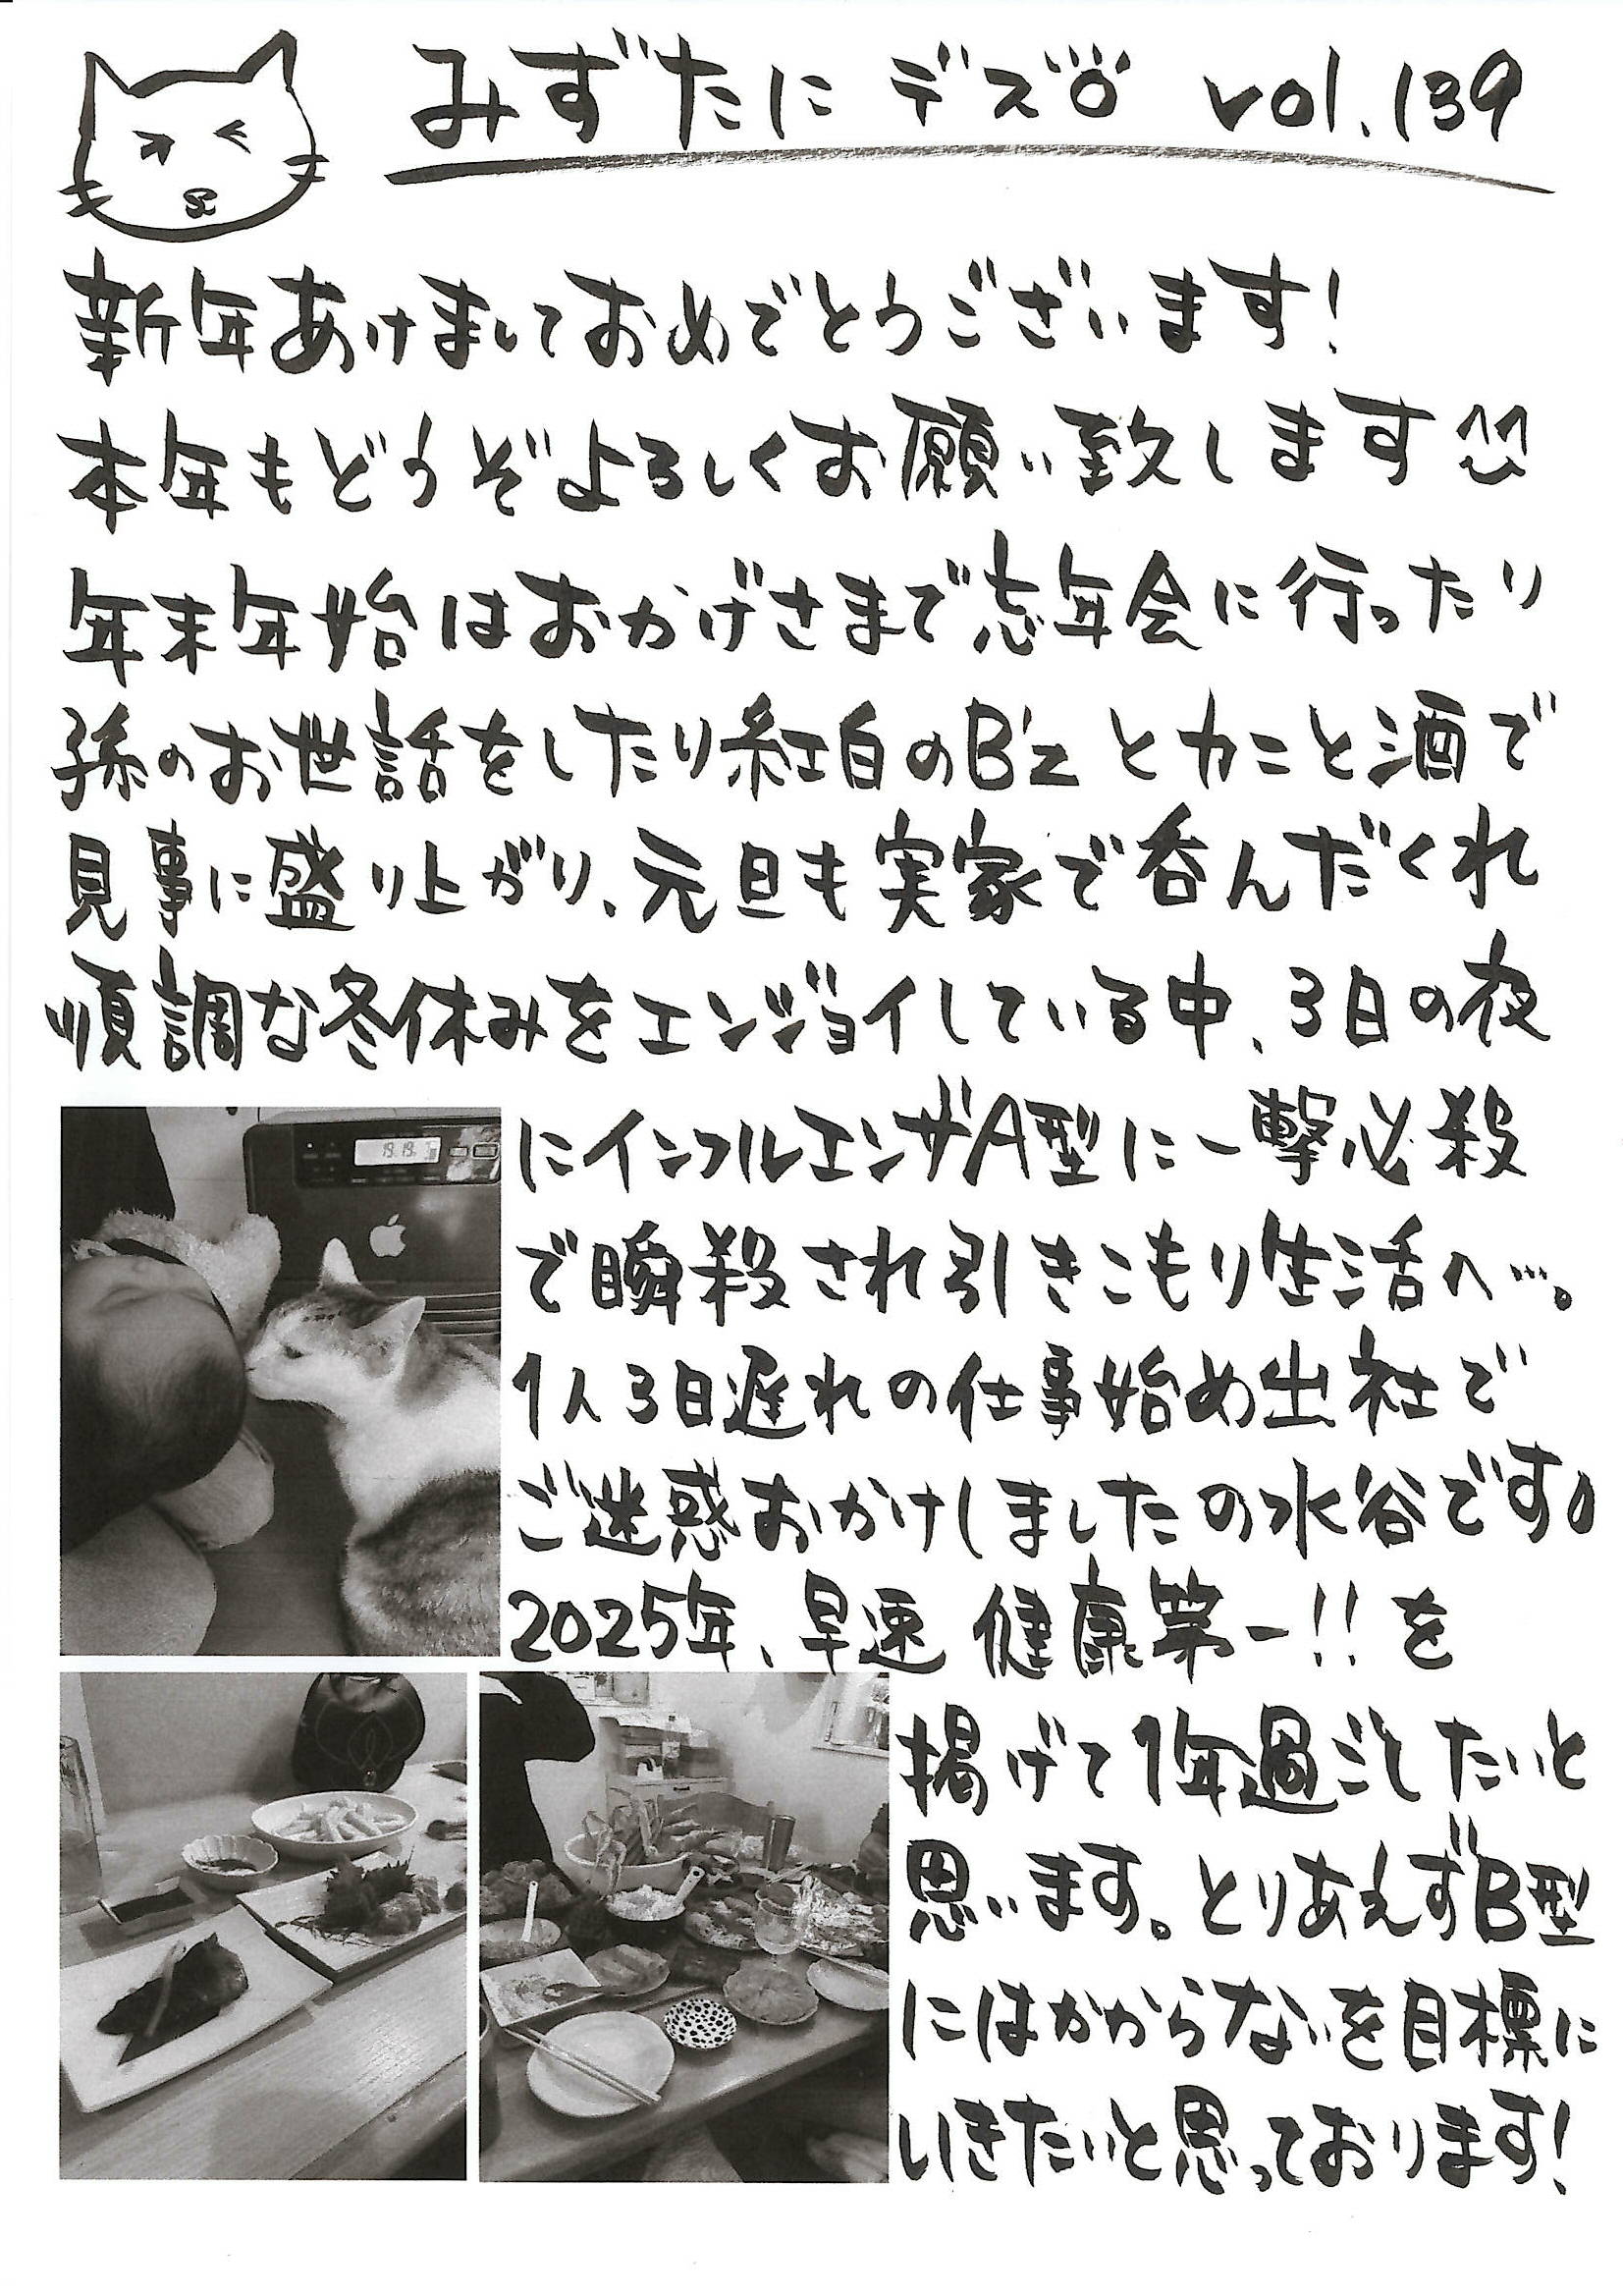 みずたにデス vol.139
新年あけましておめでとうございます!
本年もどうぞよろしくお願い致します
年末年始はおかげさまで忘年会に行ったり
孫のお世話をしたり紅白のB'zとカニと酒で
見事に盛り上がり、元旦も実家で呑んだくれ
順調な冬休みをエンジョイしている中、3日の夜
にインフルエンザA型に一撃必殺
で瞬殺され引きこもり生活へ…。
1人3日遅れの仕事始め出社で
ご迷惑おかけしましたの水谷です。
2025年、早速 健康第一!!を
掲げて1年過ごしたいと
思います。とりあえずB型
にはかからないを目標に
いきたいと思っております!
19.19.